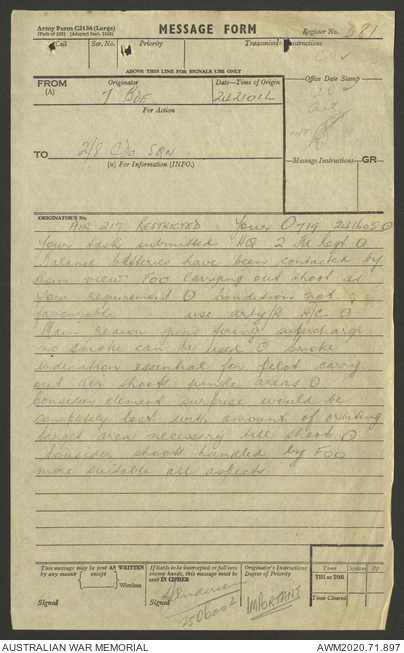 Army Form C2136 (Large)
(Pads of 100) (Adapted Sept. 1942)
MESSAGE FORM
Register No. 081
Call Ser. No. Priority Transmission Instructions
ABOVE THIS LINE FOR SIGNALS USE ONLY
FROM
(A)
Originator
7 BDE
Date—Time of Origin
242101L
Office Date Stamp
For Action
TO
2/8
(W) For Information (INFO.)
Message Instructions GR
ORIGINATOR'S No.
AIR 217 RESTRICTED Your O 719 241605
Your task submitted HQ 2 Fd Regt
Balance batteries have been contacted by
them view FOO carrying out shoot as
your requirement conditions not
favourable use arty/R A/C
Main reason guns firing supercharge
no smoke can be used smoke
indication essential for pilot carry
out air shoots jungle areas
Consider element surprise would be
completely lost with amount of orbiting
target area necessary till shoot
Consider shoot handled by FOO
more suitable all aspects
This message may be sent AS WRITTEN
by any means (except) Wireless
Signed
If liable to be intercepted or fall into
enemy hands, this message must be
sent IN CIPHER
Signed Henderson
250600L
Originator's Instructions
Degree of Priority
IMPORTANT
Time System Op
THI or TOR
Time Cleared
AUSTRALIAN WAR MEMORIAL AWM2020.71.897